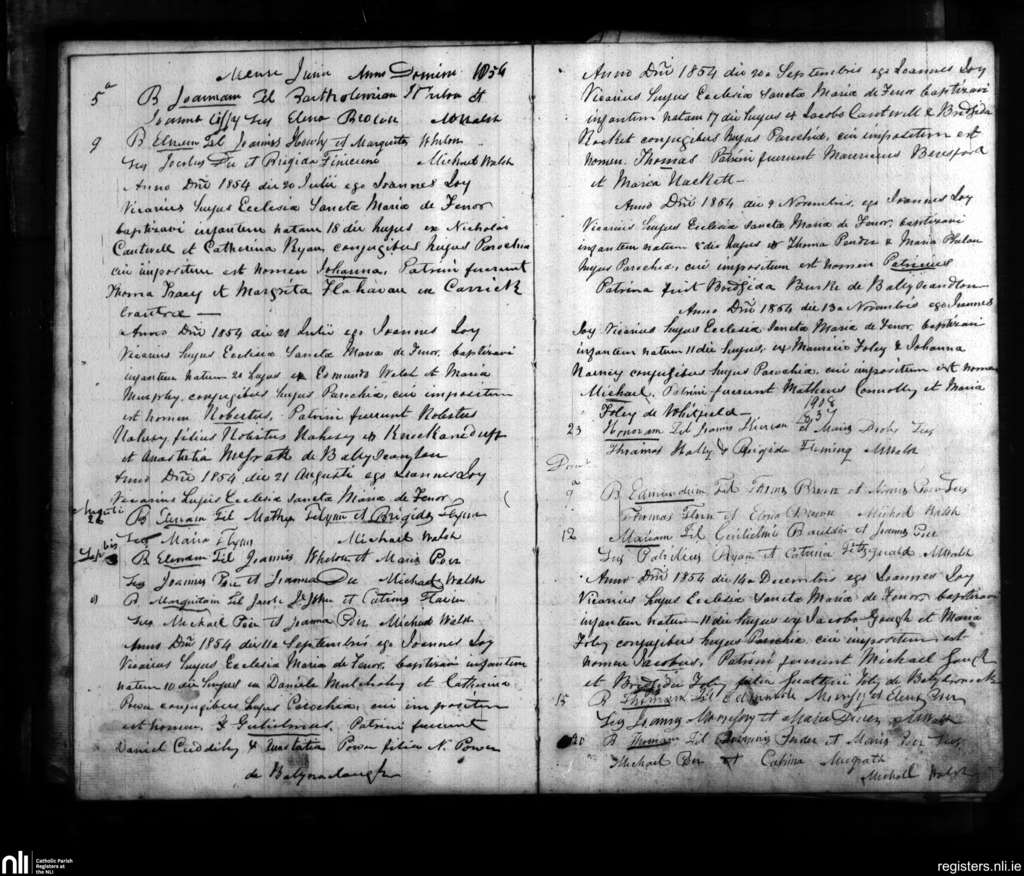 Mense Junii Anno Domini 1854
5a B Joannam Fil Bartholemian &
Joanna Ses Elena M Walsh
9 B Elenam Fil Joannis et Margarita Whelon
Ses Jacobus Due et Brigida Finicune Michael Walsh
Anno Dni 1854 die 20 Julii ego Joannes Loy
Vicarius hujus Ecclesia Sancta Maria de Fenor
baptizavi infantem natam 18 die hujus ex Nicholas
Cantwell et Catherina Ryan conjugibus hujus Parochia
cui impositum est nomen Johanna, Patrini fuerunt
Thoma Tracy et Margrita Flahavan ex Carrick
Anno Dni 1854 die 21 Julii ego Joannes Loy
Vicarius hujus Ecclesia Sancta Maria de Fenor, baptizavi
infantem natum 20 hujus ex Edmundo Welsh et Maria
Murphy, conjugibus hujus Parochia, cui impositum
est nomen Robertus, Patrini fuerunt Robertus
filius Robertus ex Knockaneduff
et Anastatia McGrath de Ballyscanlon
Anno Dni 1854 die 21 Augusti ego Joannes Loy
Vicarius hujus Ecclesia Sancta Maria de Fenor
Augusti 26 B Elenam Fil Mathys Flynn et Brigida Flynn
Ses Maria Flynn Michael Walsh
Septbis 3 B Elenam Fil Joannis Whelon et Maria Poer
Ses Joannes Poer et Joanna Due Michael Walsh
9 B Margaritam Fil et Catrina Flavin
Ses Michael Poer et Joanna Poer Michael Walsh
Anno Dni 1854 die 11a Septembris ego Joannes Loy
Vicarius hujus Ecclesia Maria de Fenor, baptizavi infantem
natum 10 die hujus ex Daniele Mulcahy et Catherina
Power conjugibus hujus Parochia, cui impositum
est nomen, Gulielmus, Patrini fuerunt
Daniel Cuddihy & Anastatia Power filia N. Power
de
Anno Dni 1854 die 20a Septembris ego Joannes Loy
Vicarius hujus Ecclesia Sancta Maria de Fenor baptizavi
infantem natum 17 die hujus ex Jacobo Cantwell & Bridgida
Nacket conjugibus hujus Parochia, cui impositum est
nomen Thomas Patrini fuerunt Mauricius Beresford
et Maria Hackett
Anno Dni 1854 die 9 Novembris, ego Joannes Loy
Vicarius hujus Ecclesia Sancta Maria de Fenor, baptizavi
infantem natum die hujus ex Thoma Power & Maria Phelan
hujus Parochia, cui impositum est nomen Patricius
Patrina fuit Bridgida Burke de Ballyscandlon
Anno Dni 1854 die 13a Novembris ego Joannes
Loy Vicarius hujus Ecclesia Sancta Maria de Fenor, baptizavi
infantem natum 11 die hujus, ex Mauricio Foley & Johanna
conjugibus hujus Parochia, cui impositum est nomen
Michael, Patrini fuerunt Matheus Connolly et Maria
Foley de Whitfield
1908
1837
23 Honoram Fil Joannis et Maria Ses
Thomas Hally & Brigida Fleming M Walsh
9a B Edmundum Fil Thomas et Poer Ses
Thomas et Elena Michael Walsh
12 Mariam Fil Guilielmi et Joanna Poer
Ses Patricius Ryan et Catrina Fitzgerald M Walsh
Anno Dni 1854 die 14a Decembris ego Joannes Loy
Vicarius hujus Ecclesia Sancta Maria de Fenor, baptizavi
infantem natum 11 die hujus ex Jacobo Gough et Maria
Foley conjugibus hujus Parochia cui impositum est
nomen Jacobus, Patrini fuerunt Michael Gough
et Bridgida Foley filia Gualteri Foley de
15 B Thomam Fil et Elena Poer
Ses Joannes et Maria M Walsh
20 B Thomam Fil et Maria Poer Ses
Michael Poer et Catrina Magrath
Michael Walsh
nli Catholic Parish
Registers at
the NLI
registers.nli.ie